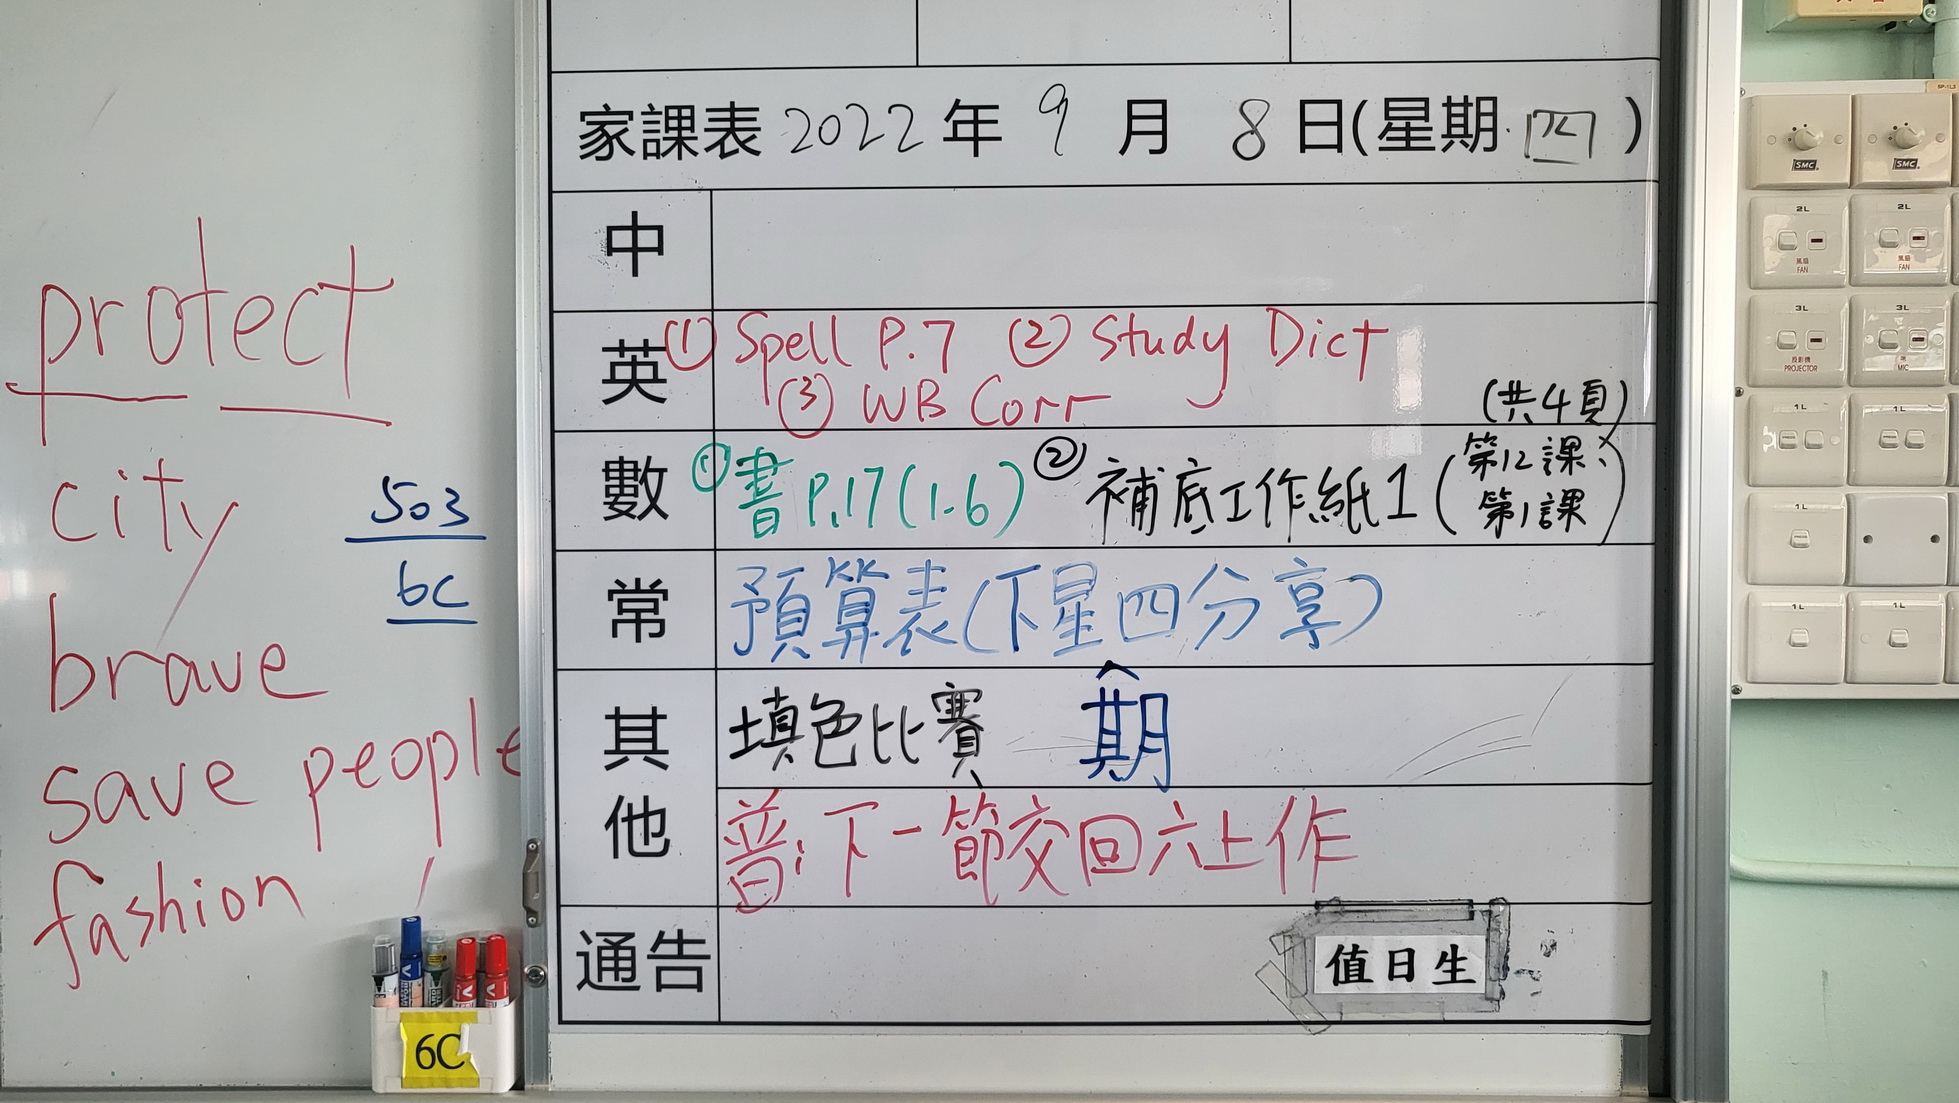 protect
city
brave
save people
fashion
503
6C
6C
家課表 2022 年 9 月 8 日(星期四)
中
英 ① Spell P.7 ② Study Dict
③ WB Corr
數 ① 書 P.17(1-6) ② 補底工作紙1(第12課、
第1課)
(共4頁)
常 預算表(下星四分享)
期
其他
填色比賽
普:下一節交回六上作
通告
值日生
SMC
SMC
2L
風扇
FAN
2L
風扇
FAN
3L
投影機
PROJECTOR
3L
咪
MIC
1L
1L
1L
1L
1L